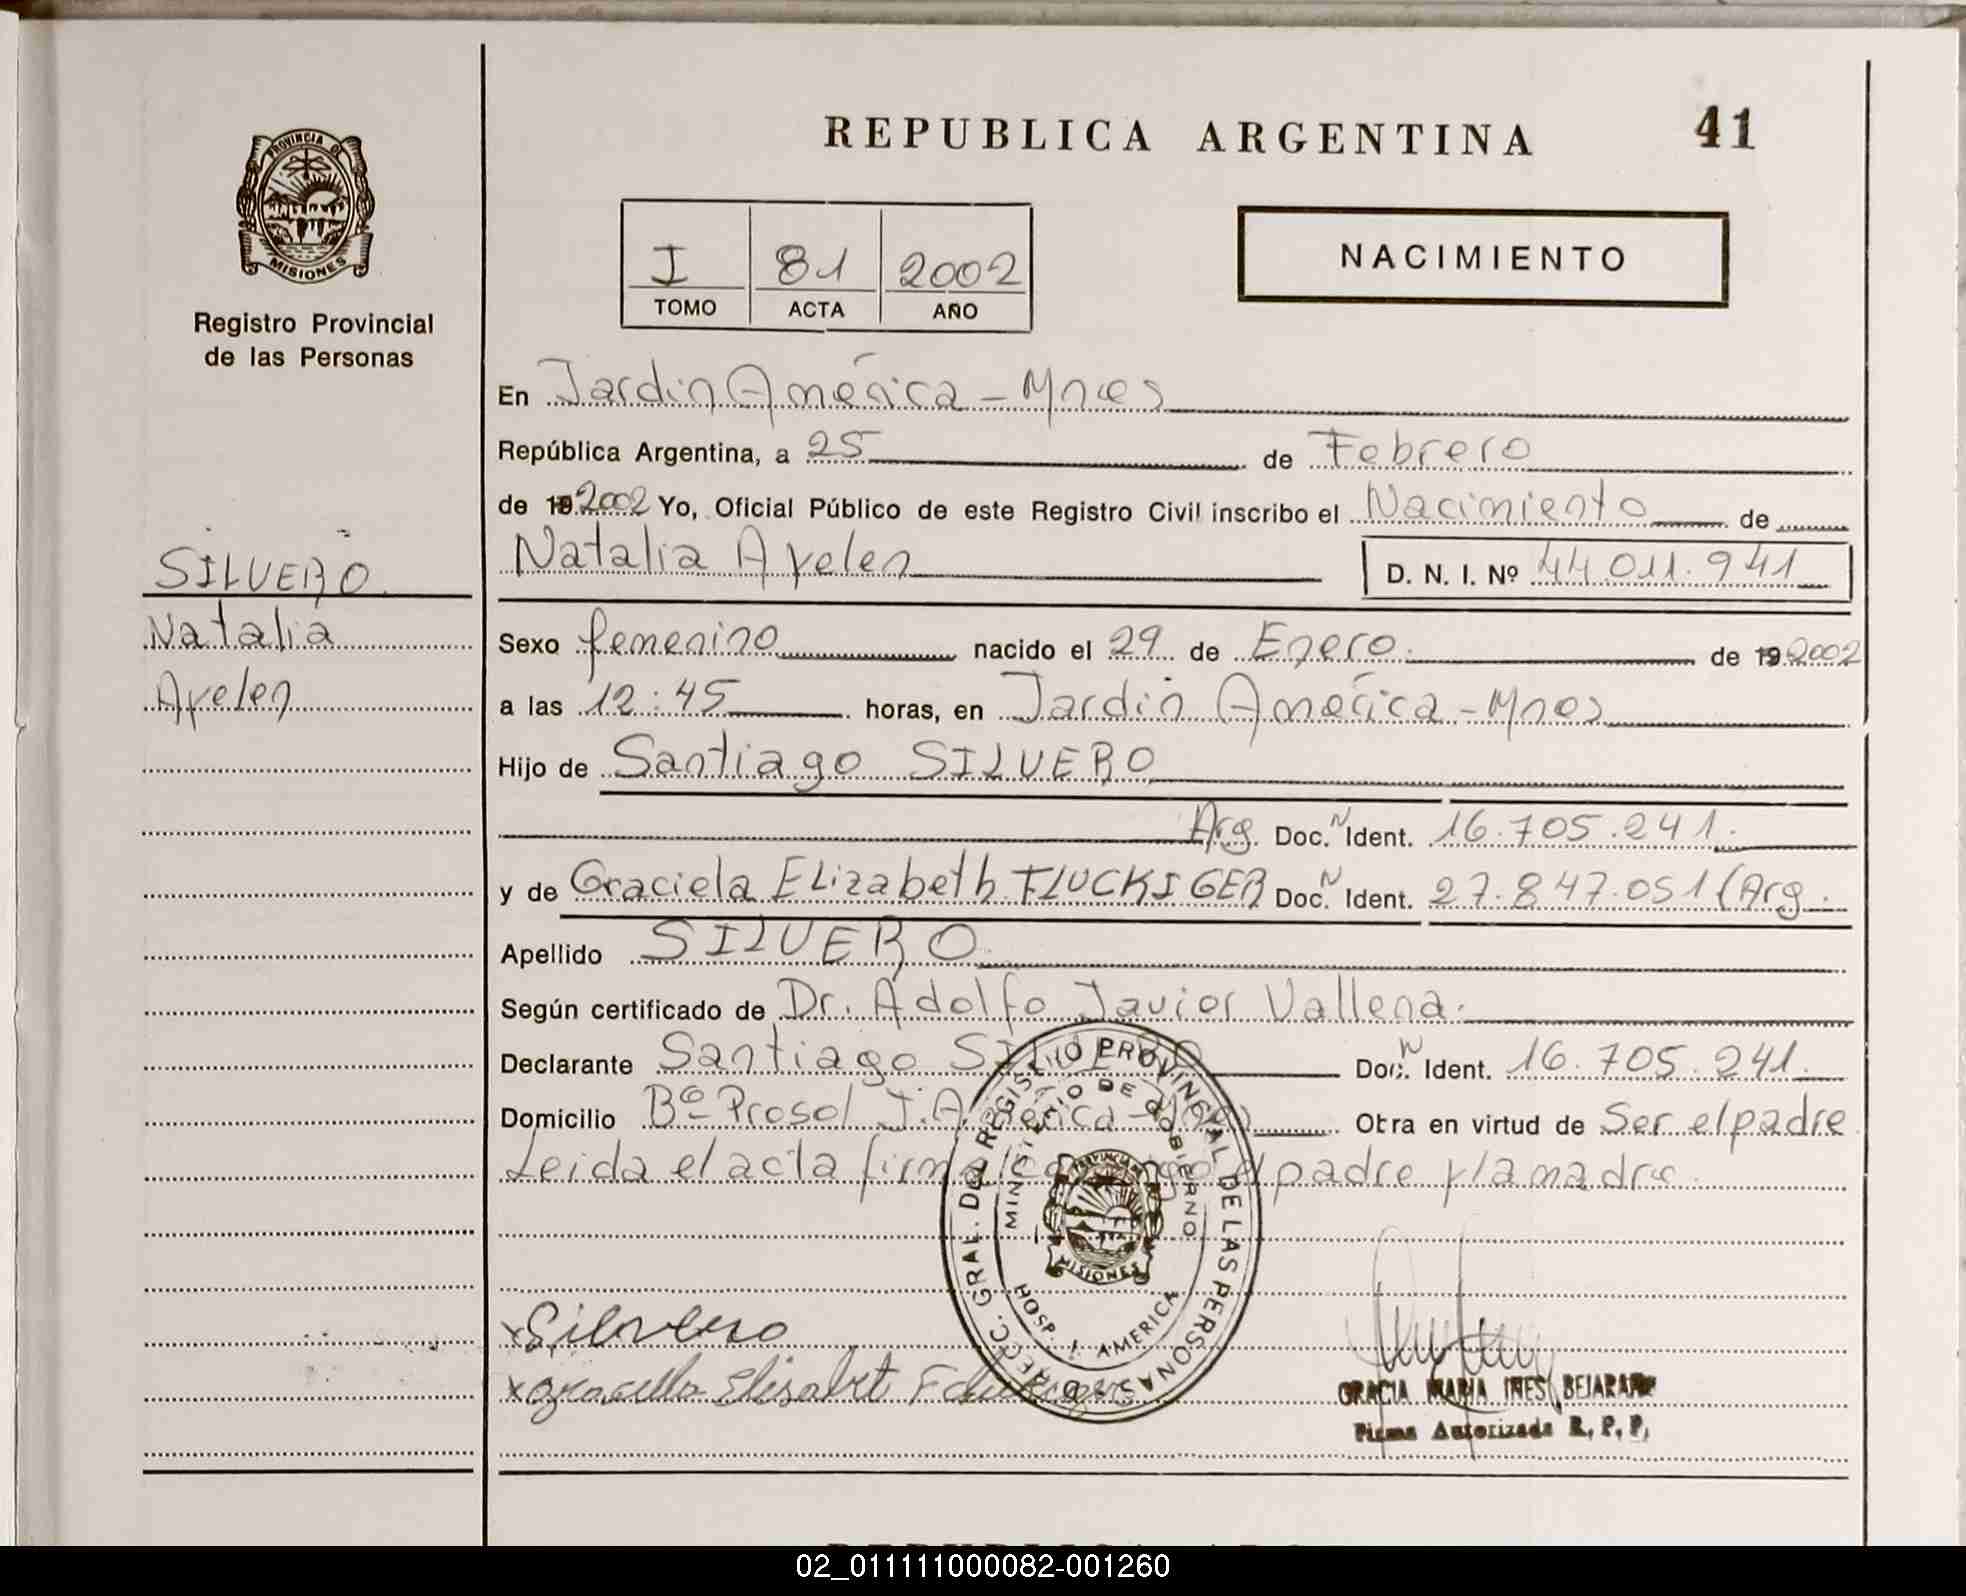 REPUBLICA ARGENTINA
41
PROVINCIA DE
MISIONES
Registro Provincial
de las Personas
I 81 2002
TOMO ACTA AÑO
NACIMIENTO
En Jardin América - Mnes
República Argentina, a 25 de Febrero
de 19 2002 Yo, Oficial Público de este Registro Civil inscribo el Nacimiento de
Natalia Ayelen D. N. I. Nº 44.011.941
SILVERO
Natalia
Ayelen
Sexo femenino nacido el 29 de Enero de 19 2002
a las 12:45 horas, en Jardin América - Mnes
Hijo de Santiago SILVERO
Arg. Doc. N Ident. 16.705.241.
y de Graciela Elizabeth FLUCKIGER Doc. N Ident. 27.847.051 (Arg.
Apellido SILVERO
Según certificado de Dr. Adolfo Javier Vallena.
Declarante Santiago SILVERO Doc. N Ident. 16.705.241.
Domicilio Bº Prosol J. América - Mnes Obra en virtud de Ser el padre
Leida el acta firma conmigo el padre y la madre.
GRAL. DEL REGISTRO PROVINCIAL DE LAS PERSONAS
MINISTERIO DE GOBIERNO
PROVINCIA DE
MISIONES
HOSP. J. AMERICA
x Silvero
GRACIA MARIA INES BEJARANO
Firma Autorizada R. P. P.
02_011111000082-001260